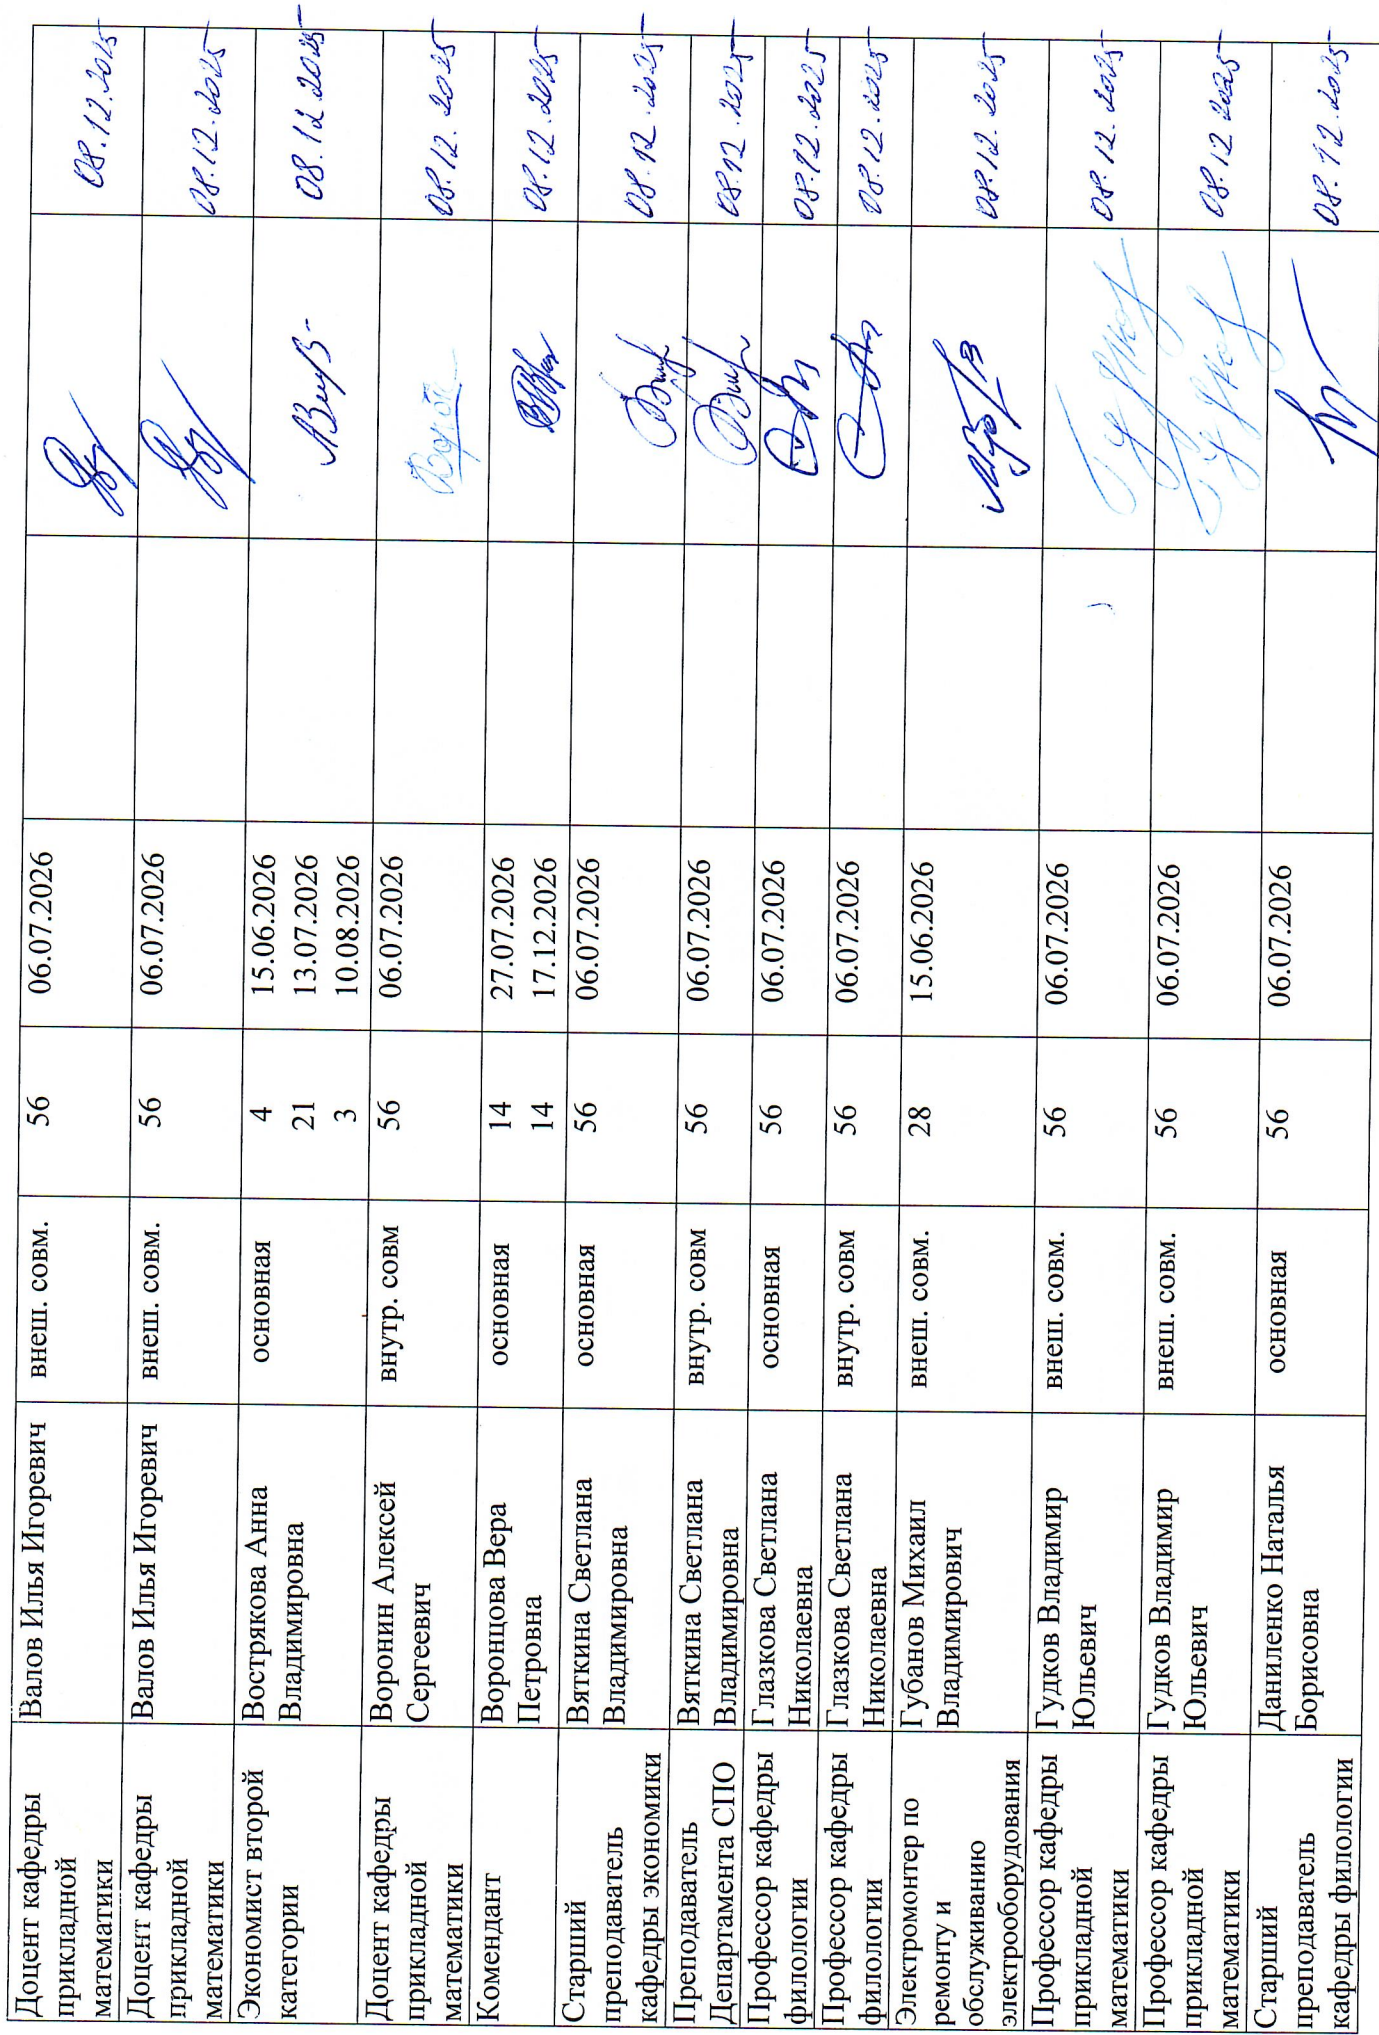 Доцент кафедры
прикладной
математики
Валов Илья Игоревич
внеш. совм.
56
06.07.2026
08.12.2025
Доцент кафедры
прикладной
математики
Валов Илья Игоревич
внеш. совм.
56
06.07.2026
08.12.2025
Экономист второй
категории
Вострякова Анна
Владимировна
основная
4
21
3
15.06.2026
13.07.2026
10.08.2026
08.12.2025
Доцент кафедры
прикладной
математики
Воронин Алексей
Сергеевич
внутр. совм
56
06.07.2026
08.12.2025
Комендант
Воронцова Вера
Петровна
основная
14
14
27.07.2026
17.12.2026
08.12.2025
Старший
преподаватель
кафедры экономики
Вяткина Светлана
Владимировна
основная
56
06.07.2026
08.12.2025
Преподаватель
Департамента СПО
Вяткина Светлана
Владимировна
внутр. совм
56
06.07.2026
08.12.2025
Профессор кафедры
филологии
Глазкова Светлана
Николаевна
основная
56
06.07.2026
08.12.2025
Профессор кафедры
филологии
Глазкова Светлана
Николаевна
внутр. совм
56
06.07.2026
08.12.2025
Электромонтер по
ремонту и
обслуживанию
электрооборудования
Губанов Михаил
Владимирович
внеш. совм.
28
15.06.2026
08.12.2025
Профессор кафедры
прикладной
математики
Гудков Владимир
Юльевич
внеш. совм.
56
06.07.2026
08.12.2025
Профессор кафедры
прикладной
математики
Гудков Владимир
Юльевич
внеш. совм.
56
06.07.2026
08.12.2025
Старший
преподаватель
кафедры филологии
Даниленко Наталья
Борисовна
основная
56
06.07.2026
08.12.2025